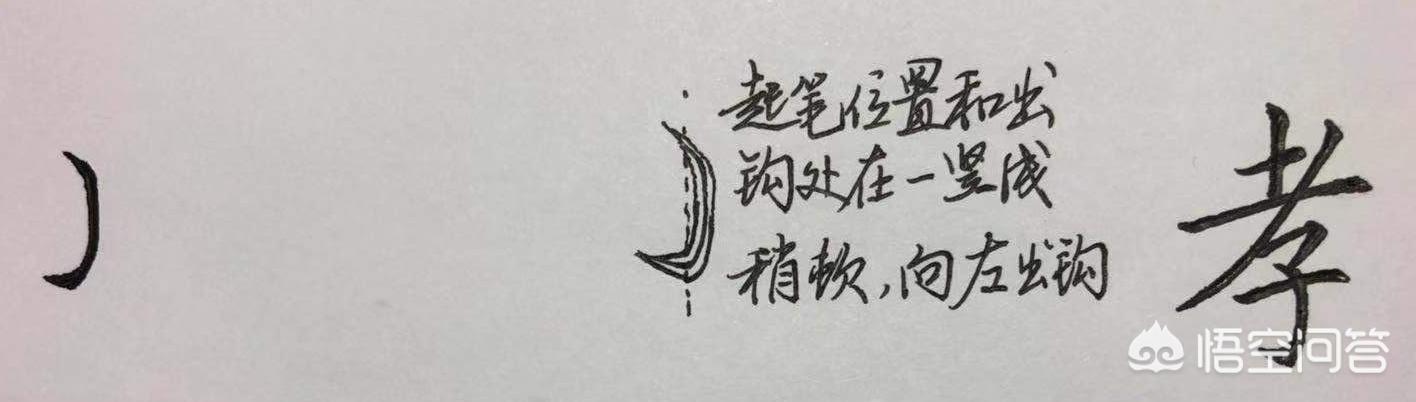 起笔位置和出
钩处在一竖线
稍软,向左出钩
孝
悟空问答